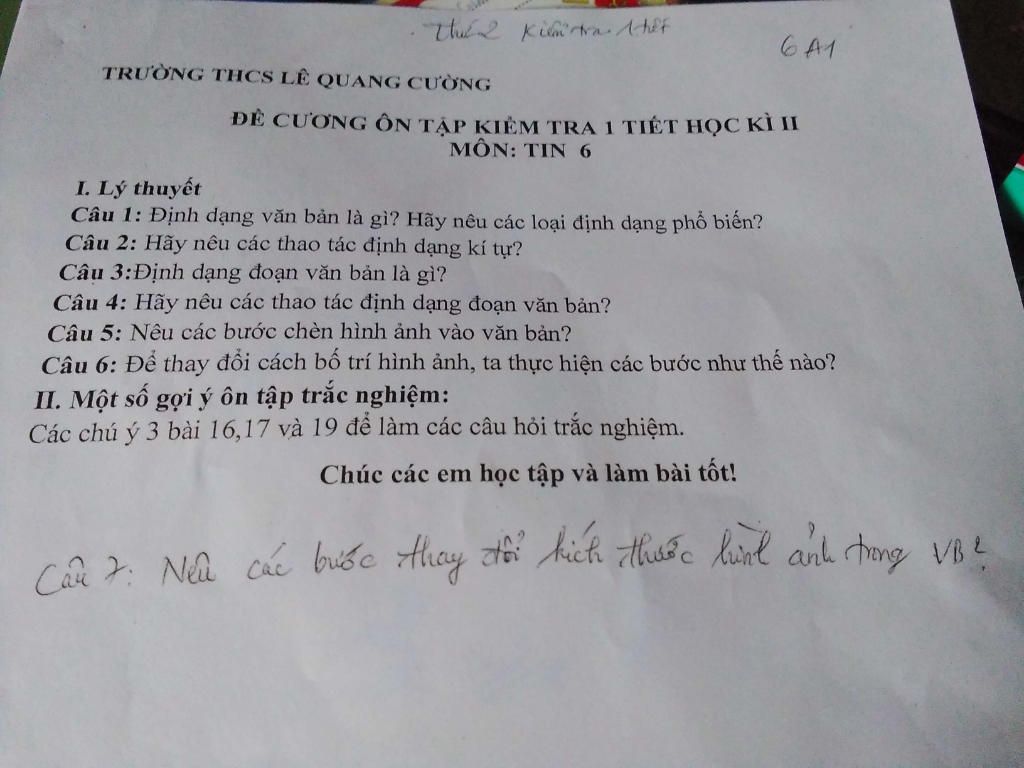 thứ 2 Kiểm tra 1 tiết
6A1
TRƯỜNG THCS LÊ QUANG CƯỜNG
ĐỀ CƯƠNG ÔN TẬP KIỂM TRA 1 TIẾT HỌC KÌ II
MÔN: TIN 6
I. Lý thuyết
Câu 1: Định dạng văn bản là gì? Hãy nêu các loại định dạng phổ biến?
Câu 2: Hãy nêu các thao tác định dạng kí tự?
Câu 3:Định dạng đoạn văn bản là gì?
Câu 4: Hãy nêu các thao tác định dạng đoạn văn bản?
Câu 5: Nêu các bước chèn hình ảnh vào văn bản?
Câu 6: Để thay đổi cách bố trí hình ảnh, ta thực hiện các bước như thế nào?
II. Một số gợi ý ôn tập trắc nghiệm:
Các chú ý 3 bài 16,17 và 19 để làm các câu hỏi trắc nghiệm.
Chúc các em học tập và làm bài tốt!
Câu 7: Nêu các bước thay đổi kích thước hình ảnh trong VB?